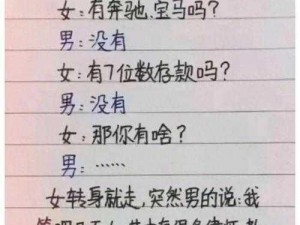 女:有奔驰、宝马吗?
男:没有
女:有7位数存款吗?
男:没有
女:那你有啥?
男:……
女转身就走,突然男的说:我